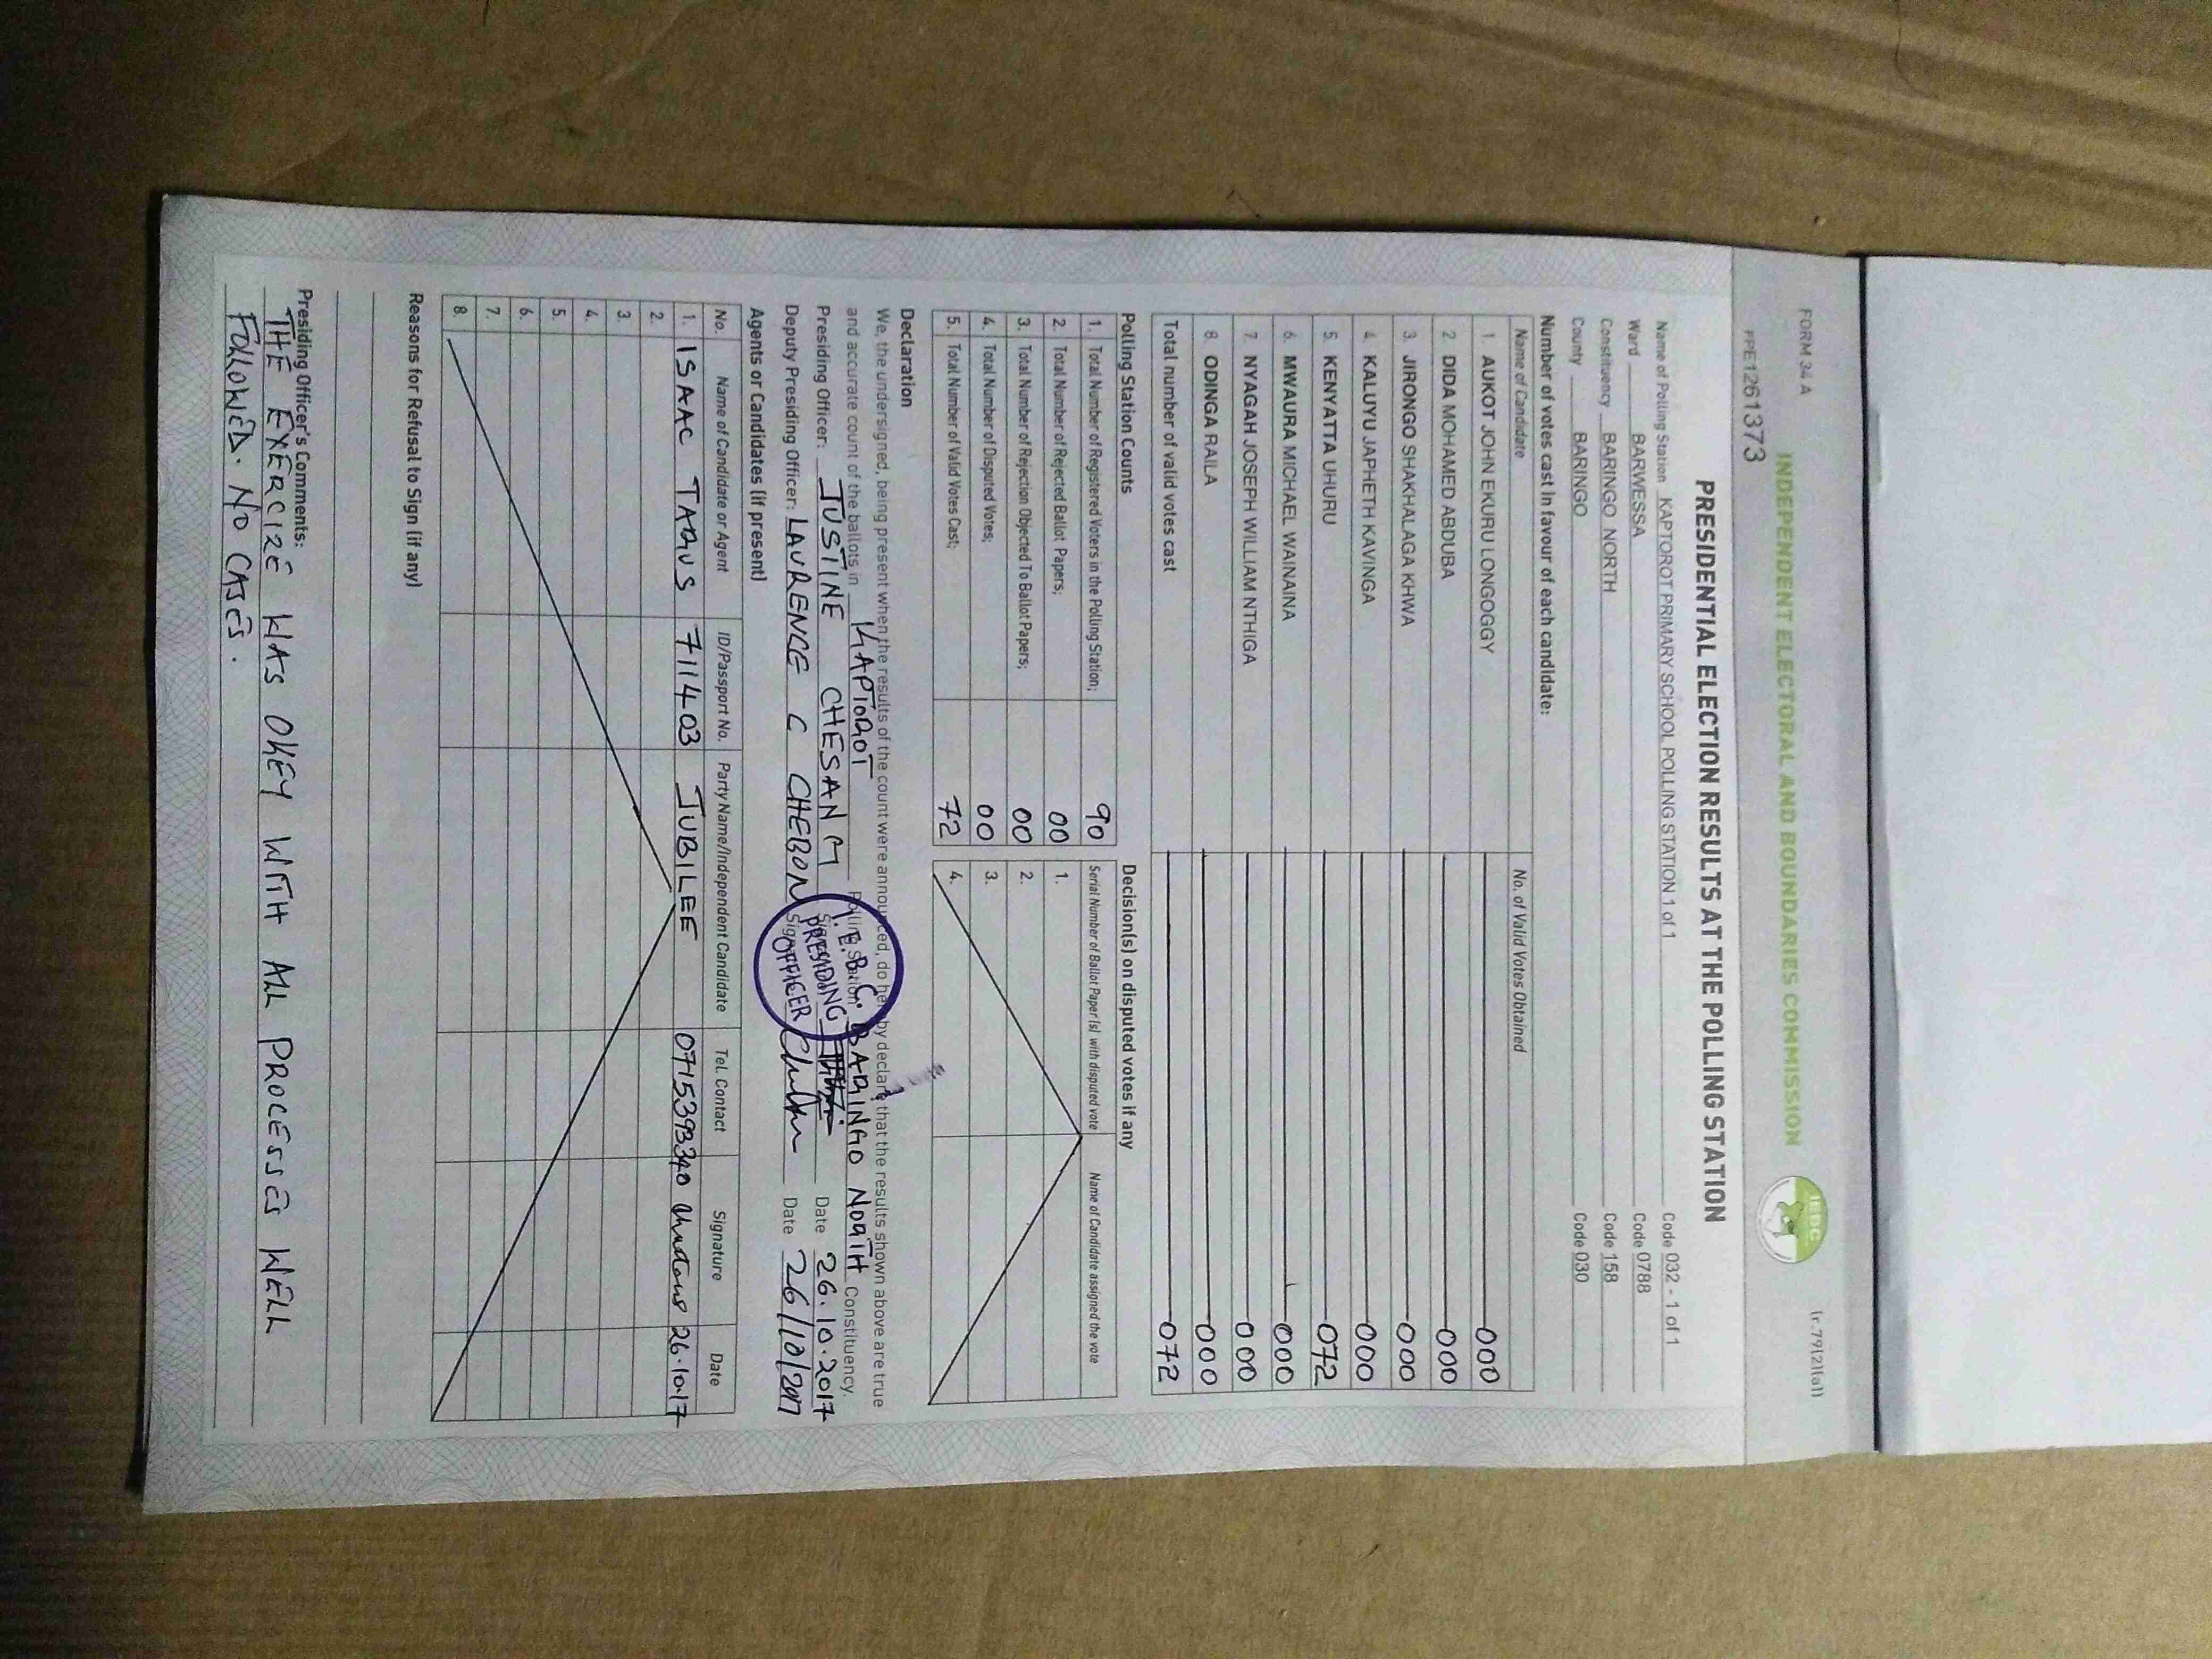 FORM 34 A
(r.79(2)(a))
INDEPENDENT ELECTORAL AND BOUNDARIES COMMISSION
IEBC
PPE1261373
PRESIDENTIAL ELECTION RESULTS AT THE POLLING STATION
Name of Polling Station KAPTOROT PRIMARY SCHOOL POLLING STATION 1 of 1 Code 032 - 1 of 1
Ward BARWESSA Code 0788
Constituency BARINGO NORTH Code 158
County BARINGO Code 030
Number of votes cast in favour of each candidate:
Name of Candidate No. of Valid Votes Obtained
1. AUKOT JOHN EKURU LONGOGGY 000
2 DIDA MOHAMED ABDUBA 000
3. JIRONGO SHAKHALAGA KHWA 000
4. KALUYU JAPHETH KAVINGA 000
5. KENYATTA UHURU 072
6. MWAURA MICHAEL WAINAINA 000
7. NYAGAH JOSEPH WILLIAM NTHIGA 000
8. ODINGA RAILA 000
Total number of valid votes cast 072
Polling Station Counts
1. Total Number of Registered Voters in the Polling Station; 90
2. Total Number of Rejected Ballot Papers; 00
3. Total Number of Rejection Objected To Ballot Papers; 00
4. Total Number of Disputed Votes; 00
5. Total Number of Valid Votes Cast; 72
Decision(s) on disputed votes if any
Serial Number of Ballot Paper (s) with disputed vote Name of Candidate assigned the vote
1.
2.
3.
4.
Declaration
We, the undersigned, being present when the results of the count were announced, do hereby declare that the results shown above are true
and accurate count of the ballots in KAPTOROT Polling Station BARINGO NORTH Constituency.
Presiding Officer: JUSTINE CHESANG M Date 26.10.2017
Deputy Presiding Officer: LAURENCE C CHEBON Signature Date 26/10/2017
I.E.B.C.
PRESIDING
OFFICER
Agents or Candidates (if present)
No. Name of Candidate or Agent ID/Passport No. Party Name/Independent Candidate Tel. Contact Signature Date
1. ISAAC TARUS 711403 JUBILEE 0715393340 26.10.17
2.
3.
4.
5.
6.
7.
8.
Reasons for Refusal to Sign (if any)
Presiding Officer's Comments:
THE EXERCIZE WAS OKEY WITH ALL PROCESSES WELL
FOLLOWED. NO CASES.